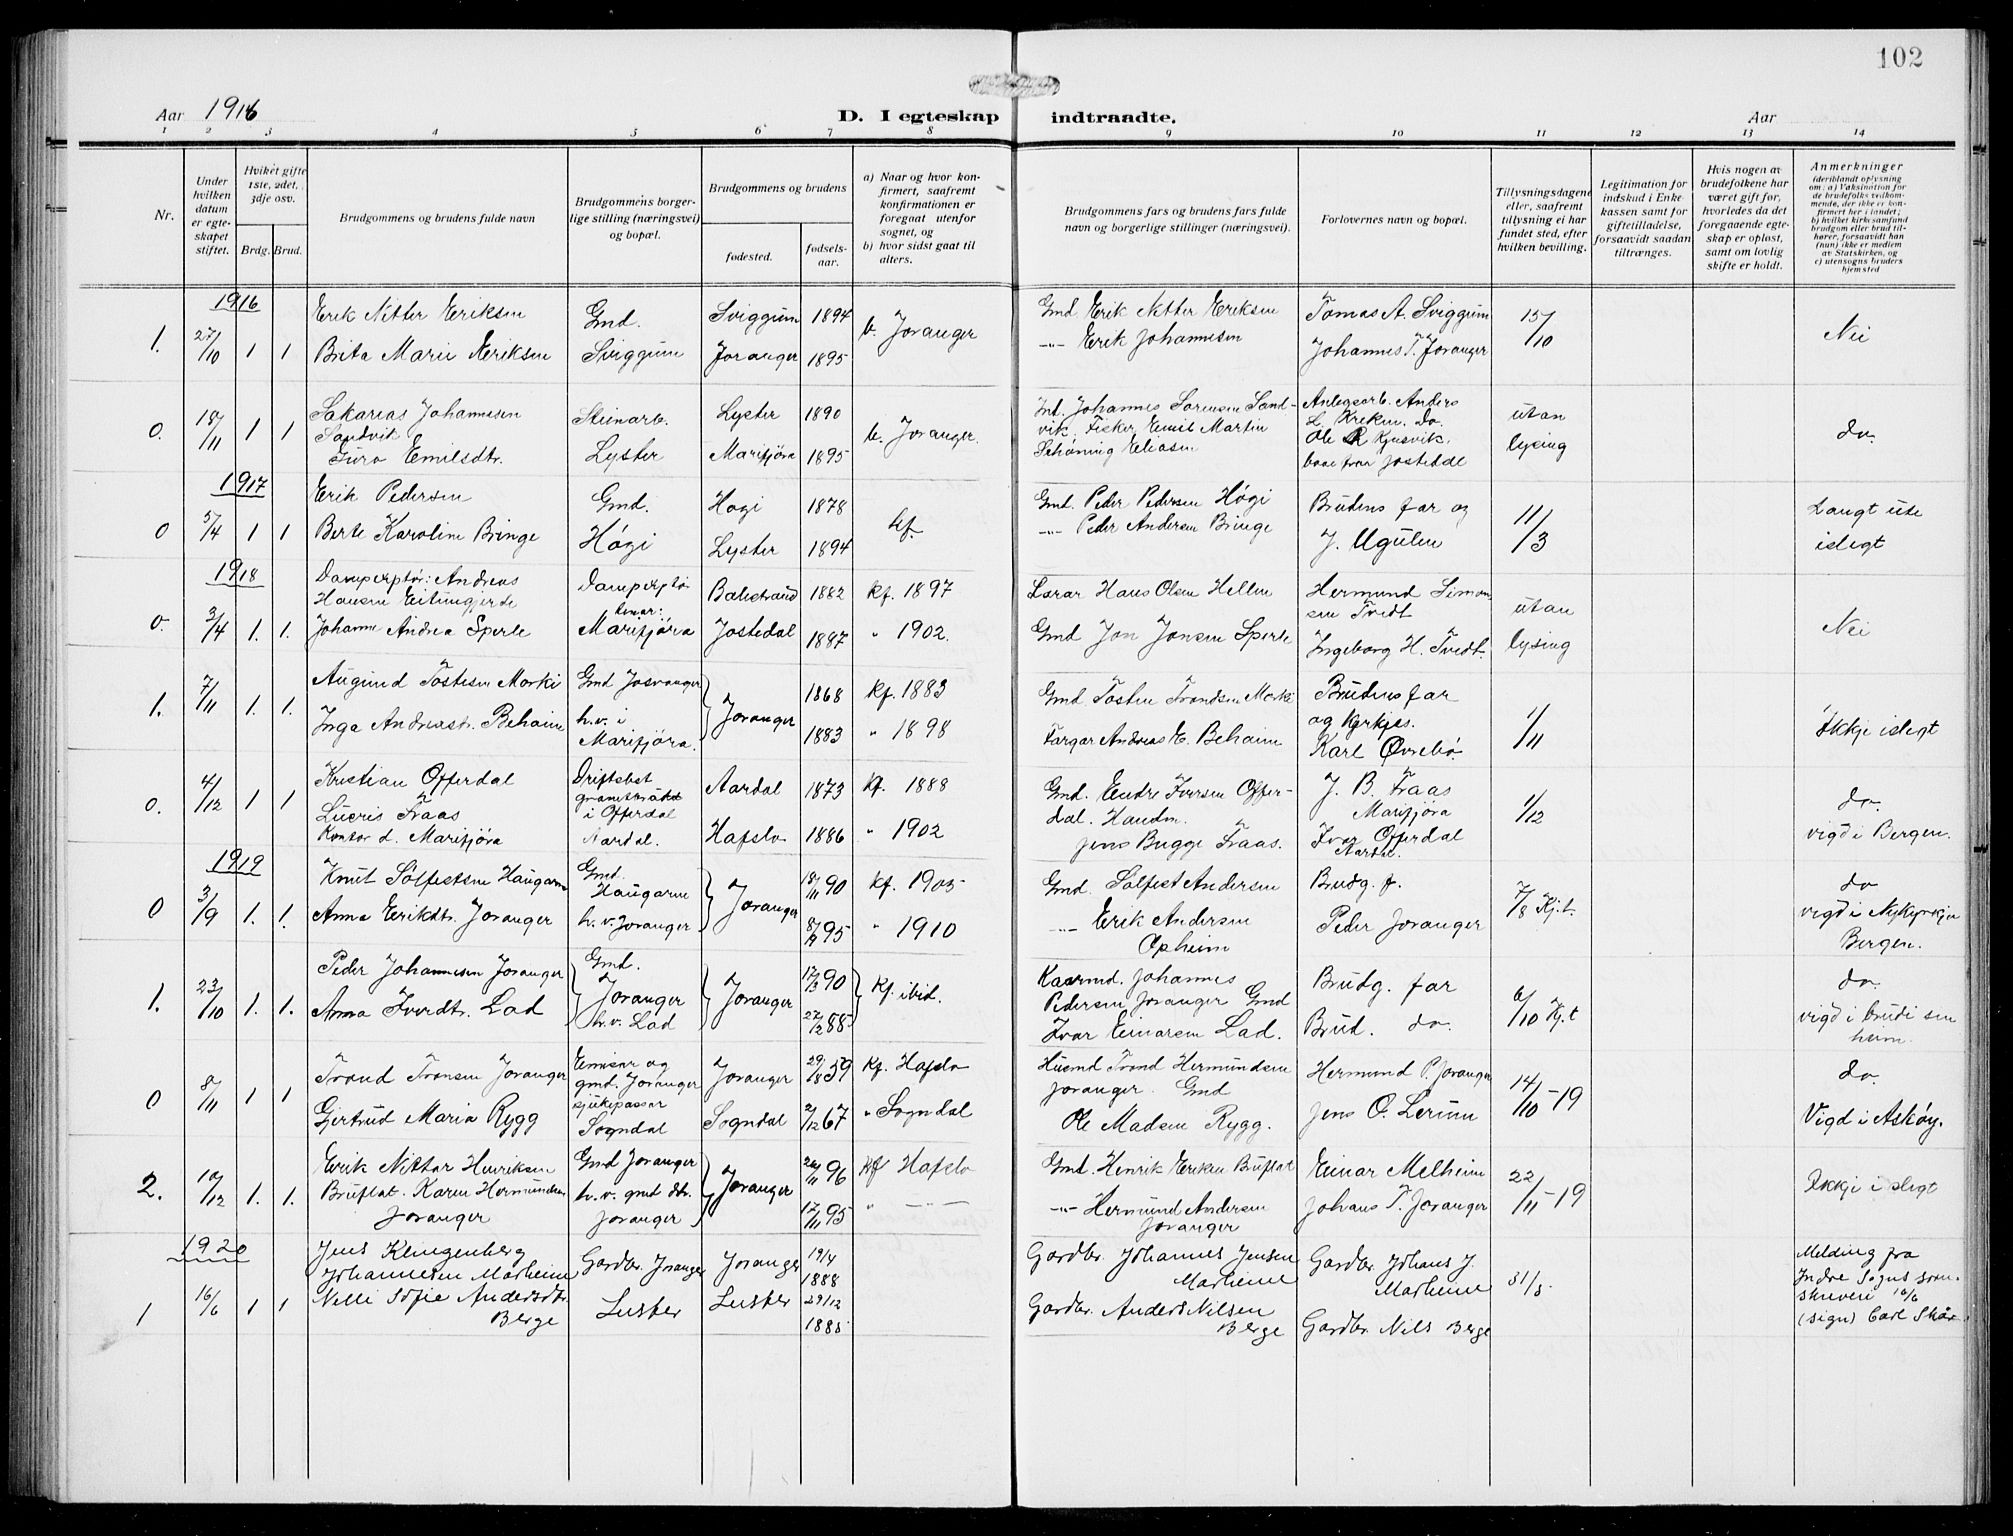 102
Aar 1916
D. I egteskap indtraadte.
Aar
1 2 3 4 5 6 7 8 9 10 11 12 13 14
Nr.
Under hvilken datum er egteskapet stiftet.
Hviket gifte 1ste, 2det, 3dje osv.
Brdg. Brud.
Brudgommens og brudens fulde navn
Brudgommens borgerlige stilling (næringsvei) og bopæl.
Brudgommens og brudens
fødested.
fødsels-aar.
a) Naar og hvor konfirmert, saafremt konfirmationen er foregaat utenfor sognet, og
b) hvor sidst gaat til alters.
Brudgommens fars og brudens fars fulde navn og borgerlige stillinger (næringsvei).
Forlovernes navn og bopæl.
Tillysningsdagene eller, saafremt tillysning ei har fundet sted, efter hvilken bevilling.
Legitimation for indskud i Enkekassen samt for giftetilladelse, forsaavidt saadan tiltrænges.
Hvis nogen av brudefolkene har været gift før, hvorledes da det foregaaende egteskap er opløst, samt om lovlig skifte er holdt.
Anmerkninger
(deriblandt oplysning om: a) Vaksination for de brudefolks vedkommende, der ikke er konfirmert her i landet; b) hvilket kirkesamfund brudgom eller brud tilhører, forsaavidt han (hun) ikke er medlem av Statskirken, og c) utensogns bruders hjemsted
1916
1. 27/10 1 1
Erik Nitter Eriksen
Brita Marie Eriksen
Gmd.
Sviggum
Sviggum 1894
Joranger 1895
b. Joranger
Gmd Erik Nitter Eriksen
-"- Erik Johannesen
Tomas A. Sviggum
Johannes T. Joranger
15/10
Nei
0. 18/11 1 1
Sakarias Johannesen
Sandvik
Guro Emilsdtr.
Steinarb.
Lyster
Lyster 1890
Marifjöra 1895
b. Joranger.
Int. Johannes Sørensen Sand-
vik. Fisker Emil Martin
Schøning Eliasen
Anlegsarb. Anders
L. Kreken. Do.
Ole R Kjusvik.
baae fraa Jostedde
utan
lysing
do.
1917
0 5/4 1 1
Erik Pedersen
Berte Karoline Bringe
Gmd.
Högi
Høgi 1878
Lyster 1894
Gmd. Peder Pedersen Högi
-"- Peder Andersen Bringe
Brudens far og
J. Ugulen
11/3
Langt ute
islegt
1918
0. 3/4 1. 1.
Dampexptør: Andreas
Hansen Eitungjerde
Johanne Andrea Sperle
Dampexptør
Marifjöra
Balestrand 1882
Jostedal 1887
kf. 1897
" 1902.
Lærar Hans Olsen Hellen
Gmd Jon Jonsen Sperle
Hermund Simon
sen Tvedt
Ingeborg H. Tvedt.
utan
lysing
Nei
1. 7/11 1. 1.
Augund Tostesen Morki
Inga Andreasdtr. Behaim
Gmd Josranger
h.v. i
Marifjöra.
Joranger
1868
1883
kf. 1883
" 1898
Gmd Tosten Trondsen Morki
Fargar Andreas E. Behaim
Brudens far
og Kyrkjes.
Karl Øvrebö.
1/11
Ikkje islegt
0. 4/12 1 1
Kristian Offerdal
Lucris Fraas
Kontor d. Marifjöra
Driftsbst
i Offerdal
Aardal.
Aardal 1873
Hafslo 1886
kf. 1888
" 1902
Gmd. Endre Iversen Offer-
dal. Handm.
Jens Bugge Fraas.
J. B. Fraas
Marifjöra
Ivar Offerdal
Aardal.
1/12
do.
vigd i Bergen.
1919
0 3/9 1. 1.
Knut Sølfestsen Haugarne
Anna Eriksdtr. Joranger
Gmd.
Haugarne
h.v. Joranger
Joranger
18/11 90
8/9 95
kf. 1905
" 1910
Gmd. Sølfest Andersen
-"- Erik Andersen
Opheim
Brudg. f.
Peder Joranger
7/8 Kj.t.
do
vigd i Nykyrkjen
Bergen.
1. 23/10 1. 1.
Peder Johannesen Joranger
Anna Iverdtr. Lad
Gmd.
Joranger
h.v. Lad
Joranger
17/3 90
27/2 88
kf. ibid.
Kaarmd. Johannes
Pedersen Joranger Gmd
Ivar Einarsen Lad.
Brudg. far
Brud. do.
6/10 Kj.t
do.
vigd i brudi sin
heim.
0 8/11 1 1
Trond Tronsen Joranger
Gjertrud Maria Rygg
Emisær og
gmd. Joranger
sjukepassar
Sogndal
Joranger 29/8 59
Sogndal 2/12 67
kf. Hafslo
" Sogndal
Husmd Trond Hermundsen
Joranger. Gmd
Ole Madsen Rygg.
Hermund P. Joranger
Jens O. Lerum
14/10-19
do.
Vigd i Askøy.
2. 10/12 1. 1.
Erik Nitter Henriksen
Bruflat. Karen Hermundsen
Joranger
Gmd Joranger
h.v. gmd dtr.
Joranger
Joranger
26/11 96
17/11 95
kf Hafslo
" -"-
Gmd. Henrik Eriksen Bruflat
-"- Hermund Andersen
Joranger
Einar Melheim
Johans T. Joranger
22/11-19
Ikkje i slegt
1920
1 16/6 1 1
Jens Klingenberg
Johannesen Marheine
Nelli Sofie Andersdtr.
Berge
Gardbr. Joranger
Luster
Joranger 19/4 1888
Luster 29/12 1885
Gardbr. Johannes Jensen
Marheine
Gardbr. Anders Nilsen
Berge
Gardbr. Johans J.
Marheine
Gardbr. Nils Berge
31/5.
Melding fra
Indre Sogns soren-
skriveri 16/6
(sign) Carl Skår.